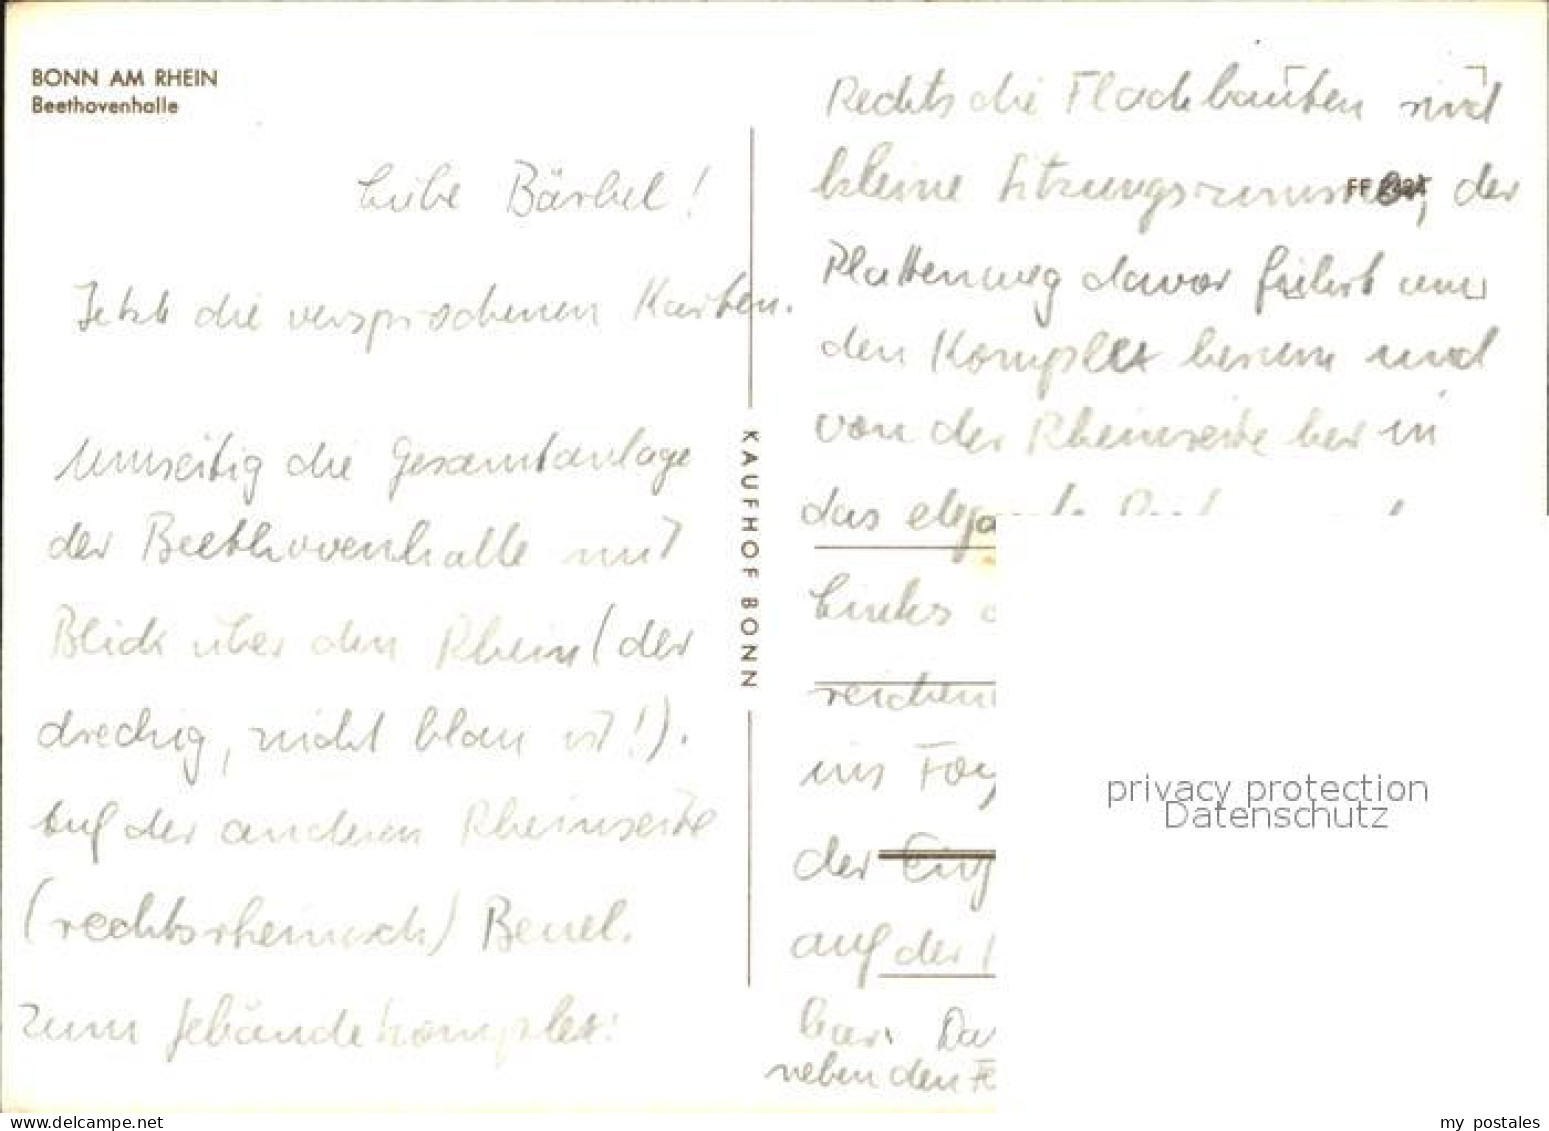 BONN AM RHEIN
Beethovenhalle
Liebe Bärbel!
Jetzt die versprochenen Karten.
Umseitig die Gesamtanlage
der Beethovenhalle mit
Blick über den Rhein (der
dreckig, nicht blau ist!).
Auf der anderen Rheinseite
(rechtsrheinisch) Beuel.
Zum Gebäudekomplex:
KAUFHOF BONN
Rechts die Flachbauten sind
kleine Sitzungszimmer, der
Plattenweg davor führt um
den Komplex herum und
von der Rheinseite her in
das
Links
reichen
ins Foy
der Eing
auf der
bar. Da
neben den
FF
privacy protection
Datenschutz
www.delcampe.net
my postales